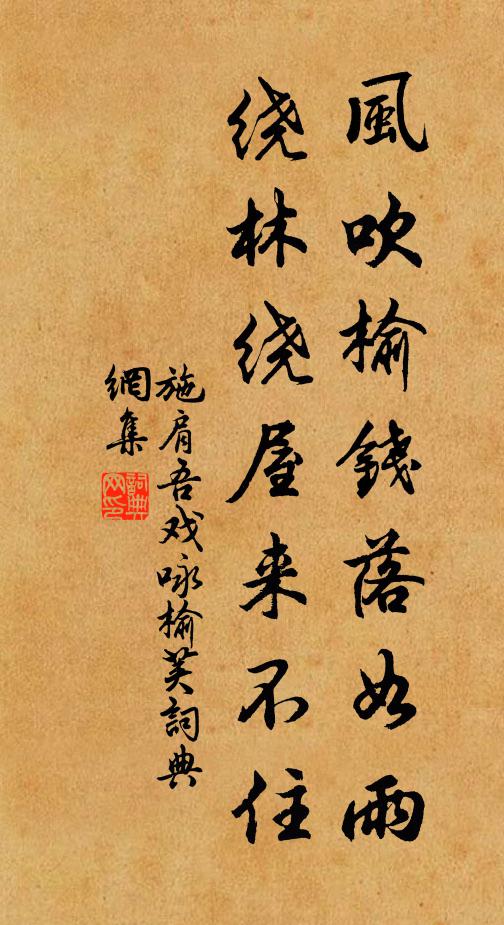 風吹榆錢落如雨
绕林绕屋来不住
施肩吾戏咏榆荚詞典
網集
詞典
网印